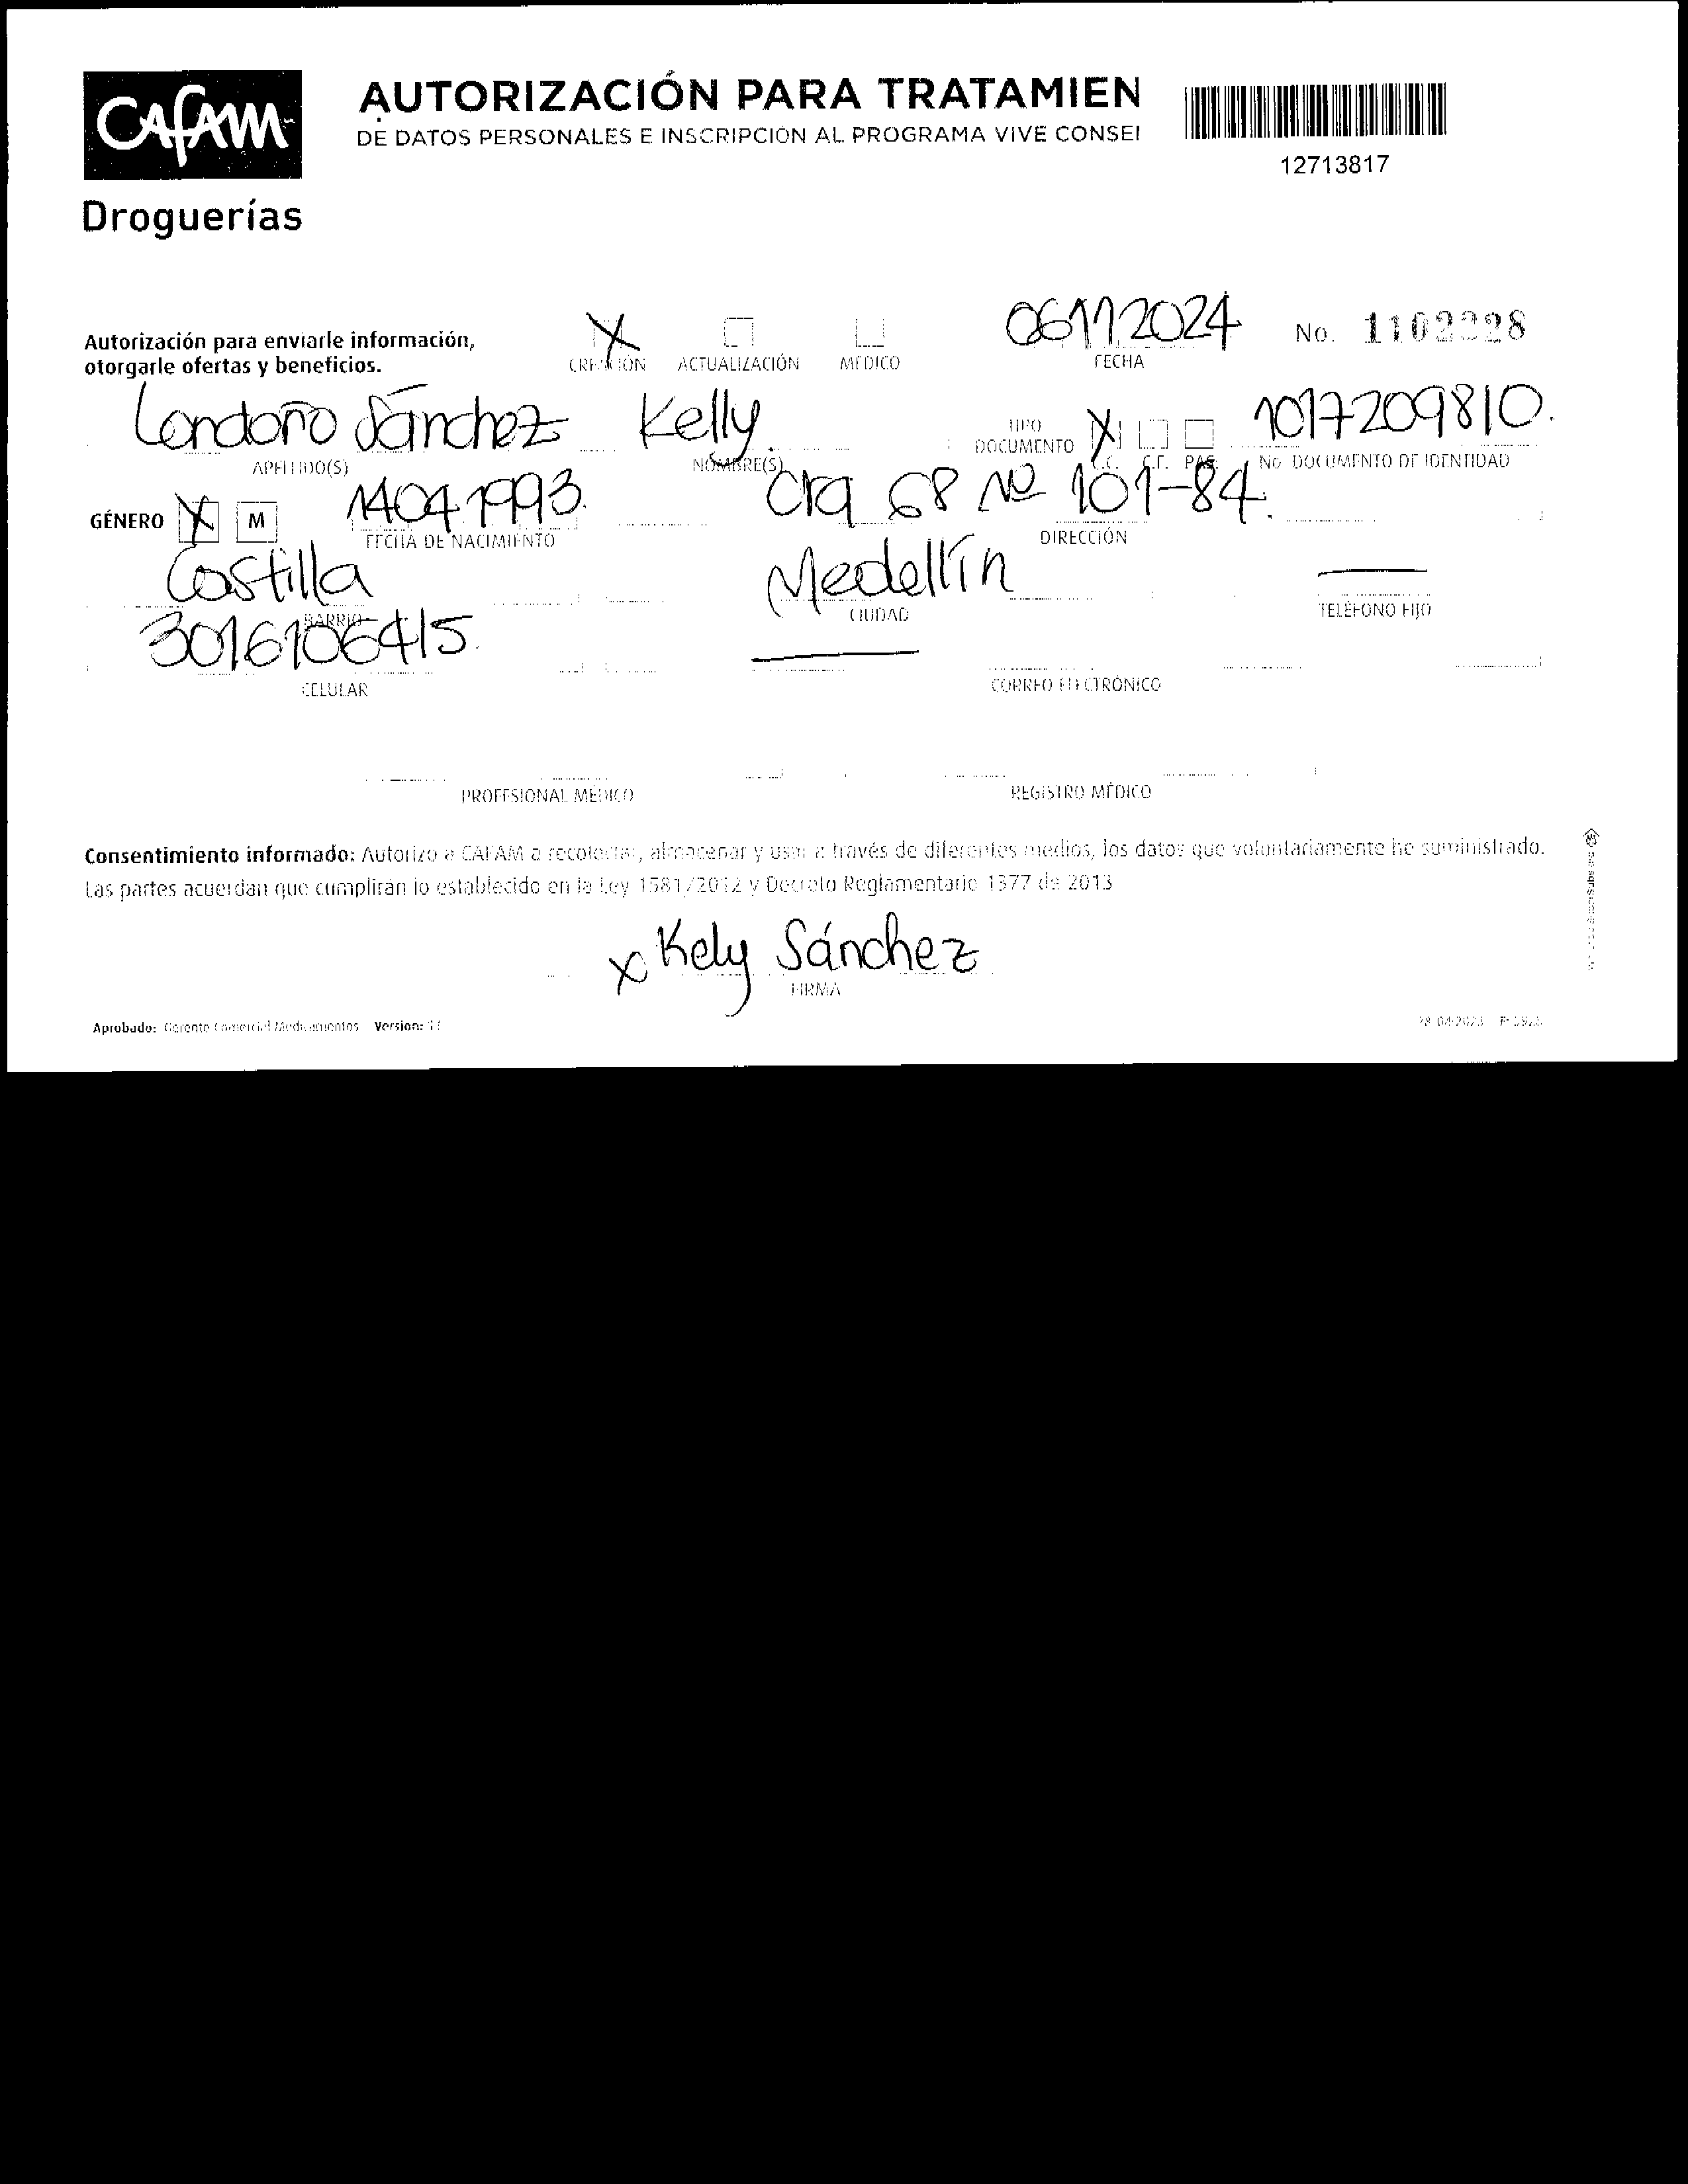 CAFAM
AUTORIZACIÓN PARA TRATAMIEN
DE DATOS PERSONALES E INSCRIPCIÓN AL PROGRAMA VIVE CONSEI
12713817
Droguerías
Autorización para enviarle información,
otorgarle ofertas y beneficios.
X
CREACIÓN ACTUALIZACIÓN MÉDICO
06112024
FECHA
No. 1102228
Londoño Sánchez Kelly
APELLIDO(S) NOMBRE(S)
TIPO
DOCUMENTO X
C.C. C.E. PAS.
1017209810.
No DOCUMENTO DE IDENTIDAD
GÉNERO X M
14041993.
FECHA DE NACIMIENTO
Cra 68 Nº 101-84.
DIRECCIÓN
Castilla
BARRIO
Medellín
CIUDAD
TELÉFONO FIJO
3016106415.
CELULAR
CORREO ELECTRÓNICO
PROFESIONAL MÉDICO
REGISTRO MÉDICO
Consentimiento informado: Autorizo a CAFAM a recolectar, almacenar y usar a través de diferentes medios, los datos que voluntariamente he suministrado.
Las partes acuerdan que cumplirán lo establecido en la Ley 1581/2012 y Decreto Reglamentario 1377 de 2013
x Kely Sánchez
FIRMA
Aprobado: Gerente Comercial Medicamentos Version: 11